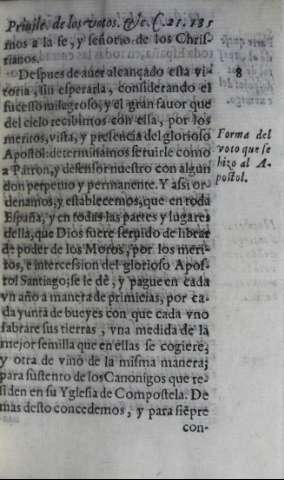 Priuile. de los votos. &c. f. 21. 135
mos a la fe, y señorio de los Chris-
tianos.
Despues de auer alcançado esta vi-
toria, sin esperarla, considerando el
sucesso milagroso, y el gran fauor que
del cielo recibimos con ella, por los
meritos, vista, y presencia del glorioso
Apostol: determinamos seruirle como
a Patron, y defensor nuestro con algun
don perpetuo y permanente. Y assi or-
denamos, y establecemos, que en toda
España, y en todas las partes y lugares
della, que Dios fuere seruido de librar
de poder de los Moros, por los meri-
tos, e intercession del glorioso Apos-
tol Santiago; se le dè, y pague en cada
vn año a manera de primicias, por ca-
da yunta de bueyes con que cada vno
labrare sus tierras, vna medida de la
mejor semilla que en ellas se cogiere,
y otra de vino de la misma manera;
para sustento de los Canonigos que re-
siden en su Yglesia de Compostela. De
mas desto concedemos, y para siẽpre
con-
8
Forma del
voto que se
hizo al A-
postol.